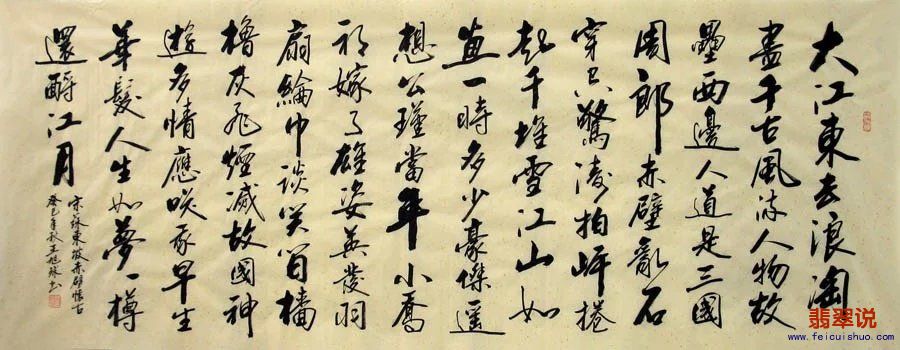 大江東去浪淘
盡千古風流人物故
壘西邊人道是三國
周郎赤壁亂石
穿空驚濤拍岸捲
起千堆雪江山如
畫一時多少豪傑遥
想公瑾當年小喬
初嫁了雄姿英發羽
扇綸巾談笑間檣
櫓灰飛煙滅故國神
遊多情應咲我早生
華髮人生如夢一樽
還酹江月
宋蘇東坡赤壁懷古
癸巳年秋王旭
翡翠说
www.feicuishuo.com